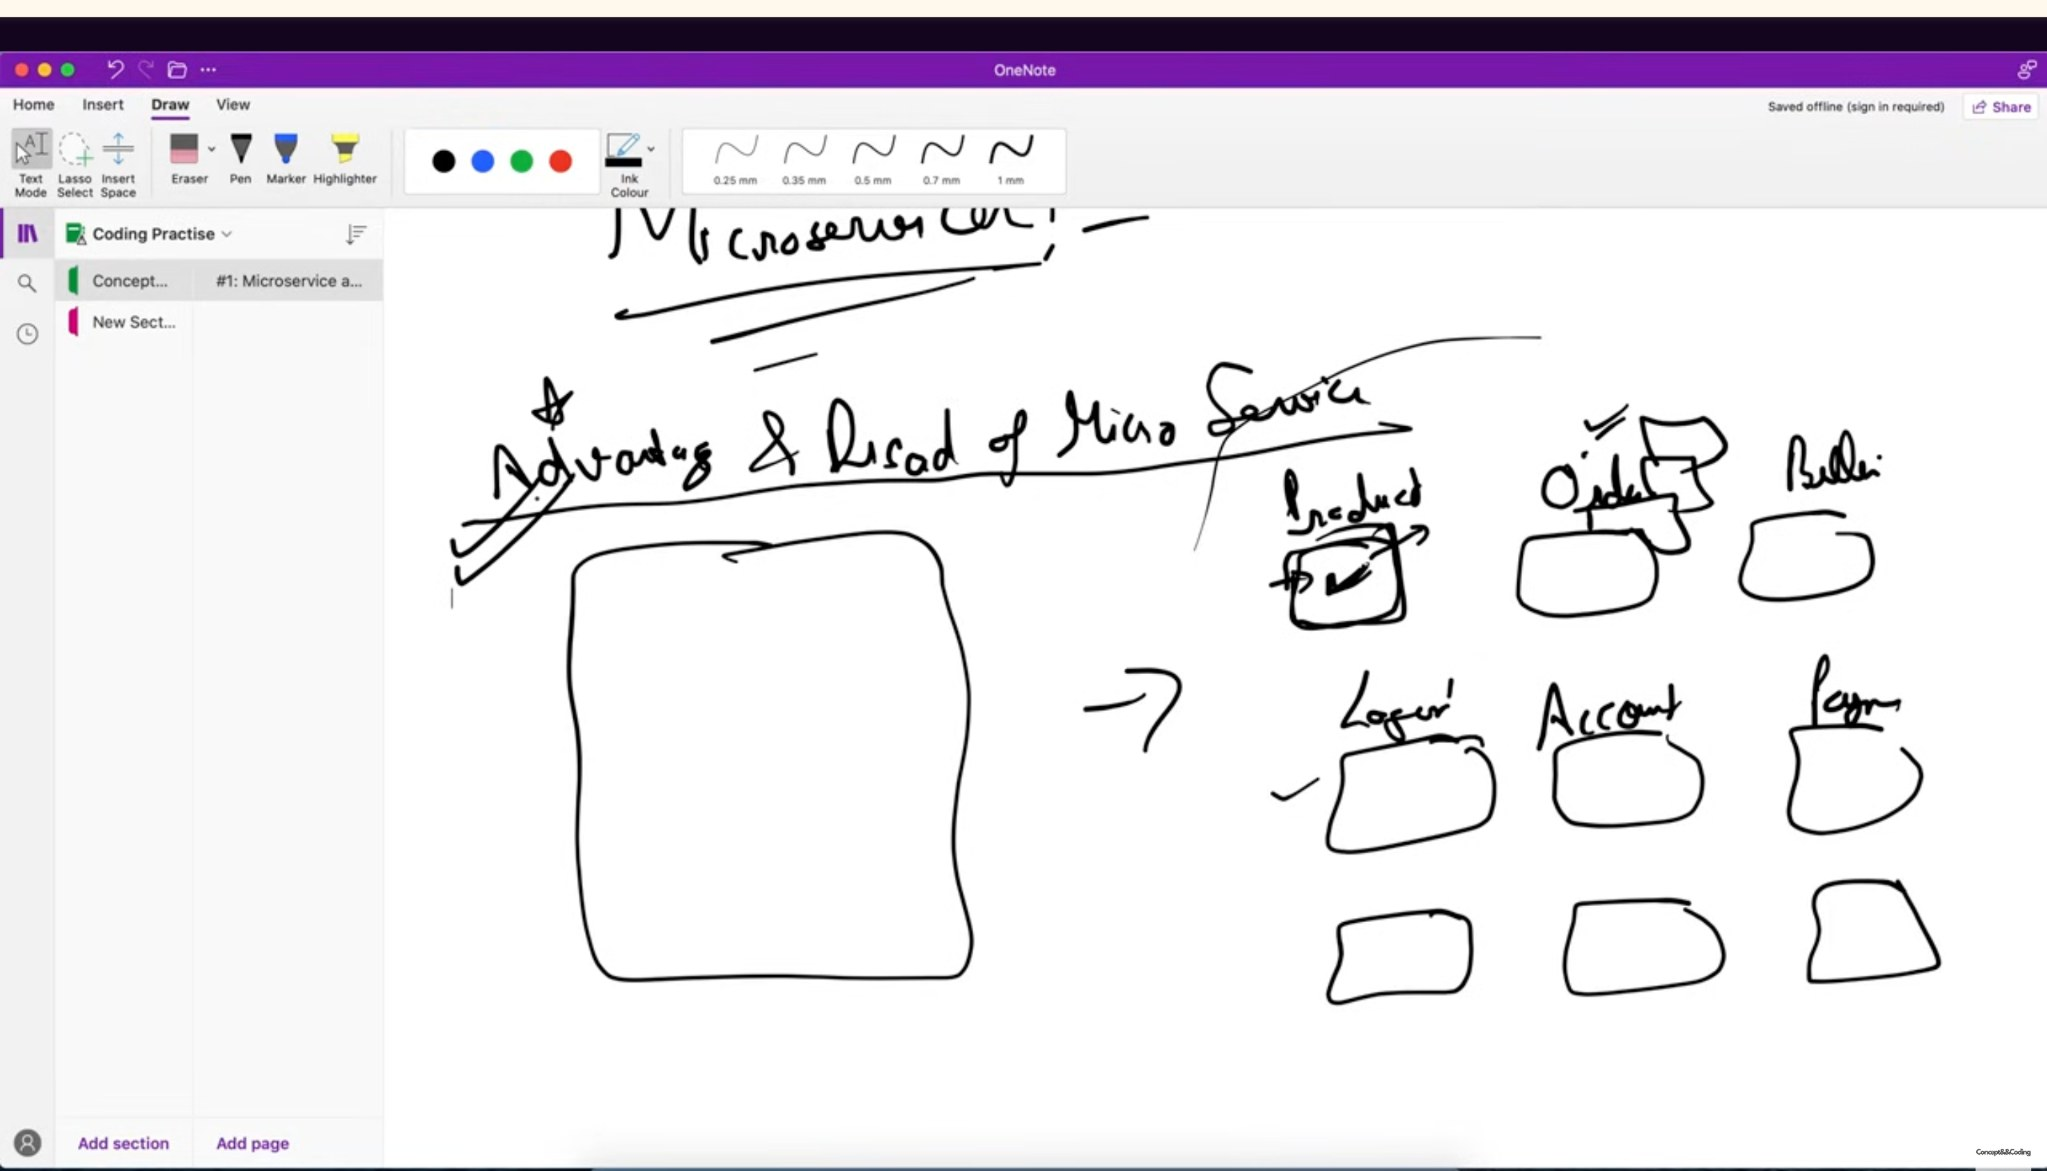 OneNote
Home Insert Draw View
Saved offline (sign in required) Share
Text Mode
Lasso Select
Insert Space
Eraser
Pen
Marker
Highlighter
Ink Colour
0.25 mm 0.35 mm 0.5 mm 0.7 mm 1 mm
Coding Practise
Concept... #1: Microservice a...
New Sect...
Microservices: -
Advantag & Disad of Micro Service
Product Order Billin
Account Paym
Add section Add page
Concept&&Coding